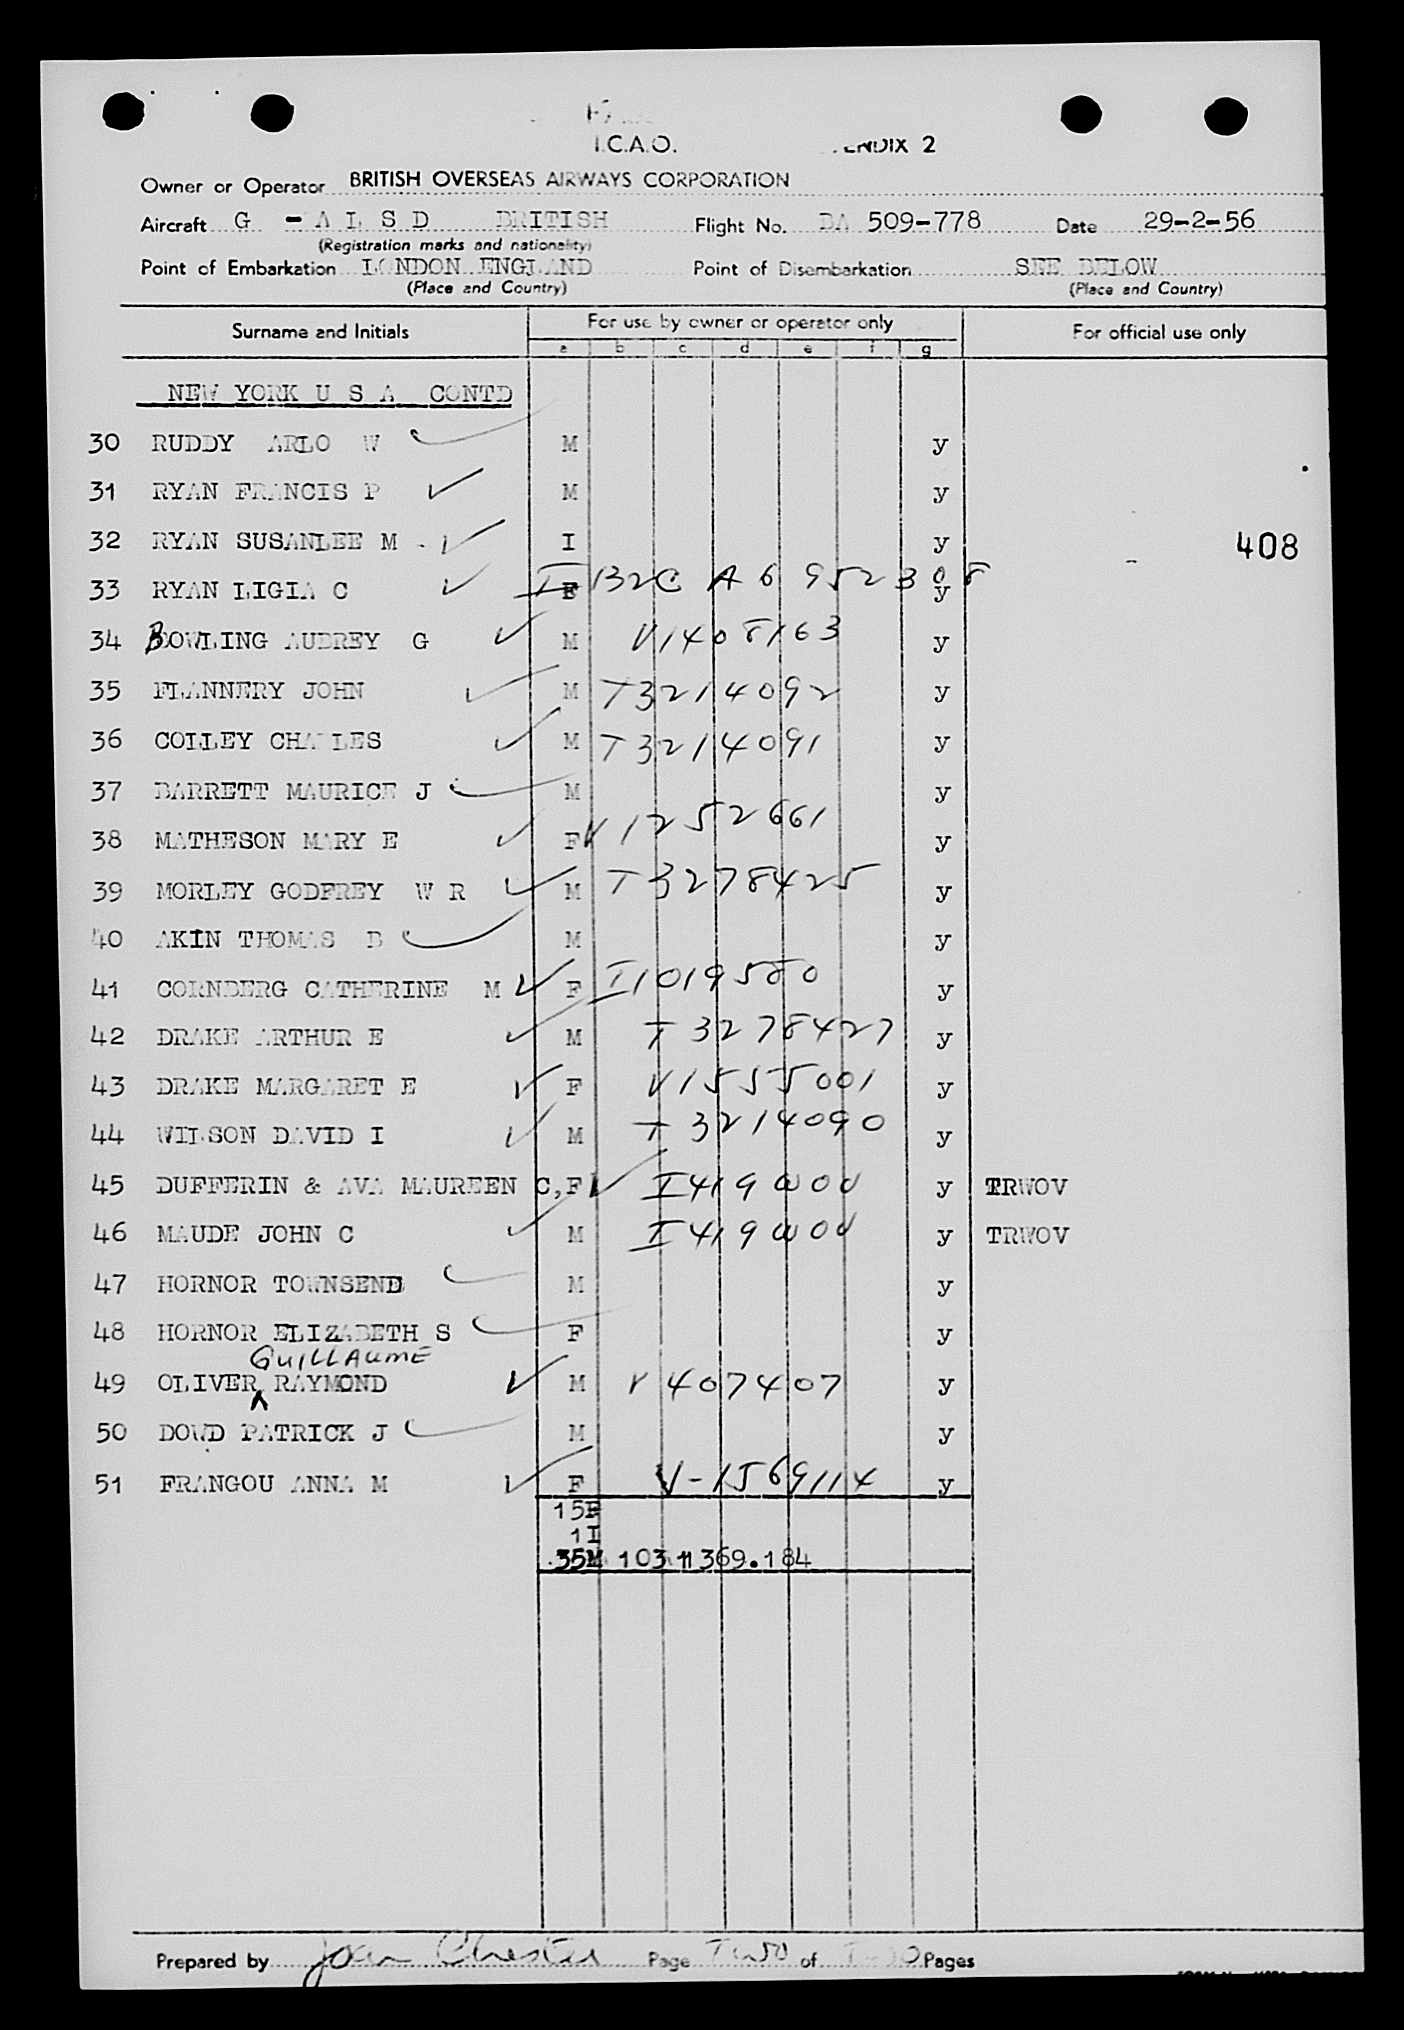 I.C.A.O. ENDIX 2
Owner or Operator BRITISH OVERSEAS AIRWAYS CORPORATION
Aircraft G - A L S D BRITISH Flight No. BA 509-778 Date 29-2-56
(Registration marks and nationality)
Point of Embarkation LONDON ENGLAND Point of Disembarkation SEE BELOW
(Place and Country) (Place and Country)
Surname and Initials For use by owner or operator only For official use only
a b c d e f g
NEW YORK U S A CONTD
30 RUDDY ARLO W M y
31 RYAN FRANCIS P M y
32 RYAN SUSANLEE M I y 408
33 RYAN LIGIA C F 132C A6 952 308 y
34 BOWLING AUDREY G M V1408163 y
35 FLANNERY JOHN M T3214092 y
36 COLLEY CHARLES M T3214091 y
37 BARRETT MAURICE J M y
38 MATHESON MARY E F V1252661 y
39 MORLEY GODFREY W R M T3278425 y
40 AKIN THOMAS B M y
41 CORNBERG CATHERINE M F I1019580 y
42 DRAKE ARTHUR E M T3278427 y
43 DRAKE MARGARET E F V1555001 y
44 WILSON DAVID I M T3214090 y
45 DUFFERIN & AVA MAUREEN C, F I419 y TRWOV
46 MAUDE JOHN C M I419 y TRWOV
47 HORNOR TOWNSEND M y
48 HORNOR ELIZABETH S F y
GUILLAUME
49 OLIVER RAYMOND M V 407407 y
50 DOWD PATRICK J M y
51 FRANGOU ANNA M F V-1569114 y
15F
1I
35M 103 11 369.184
Prepared by Joan Chester Page Two of Two Pages